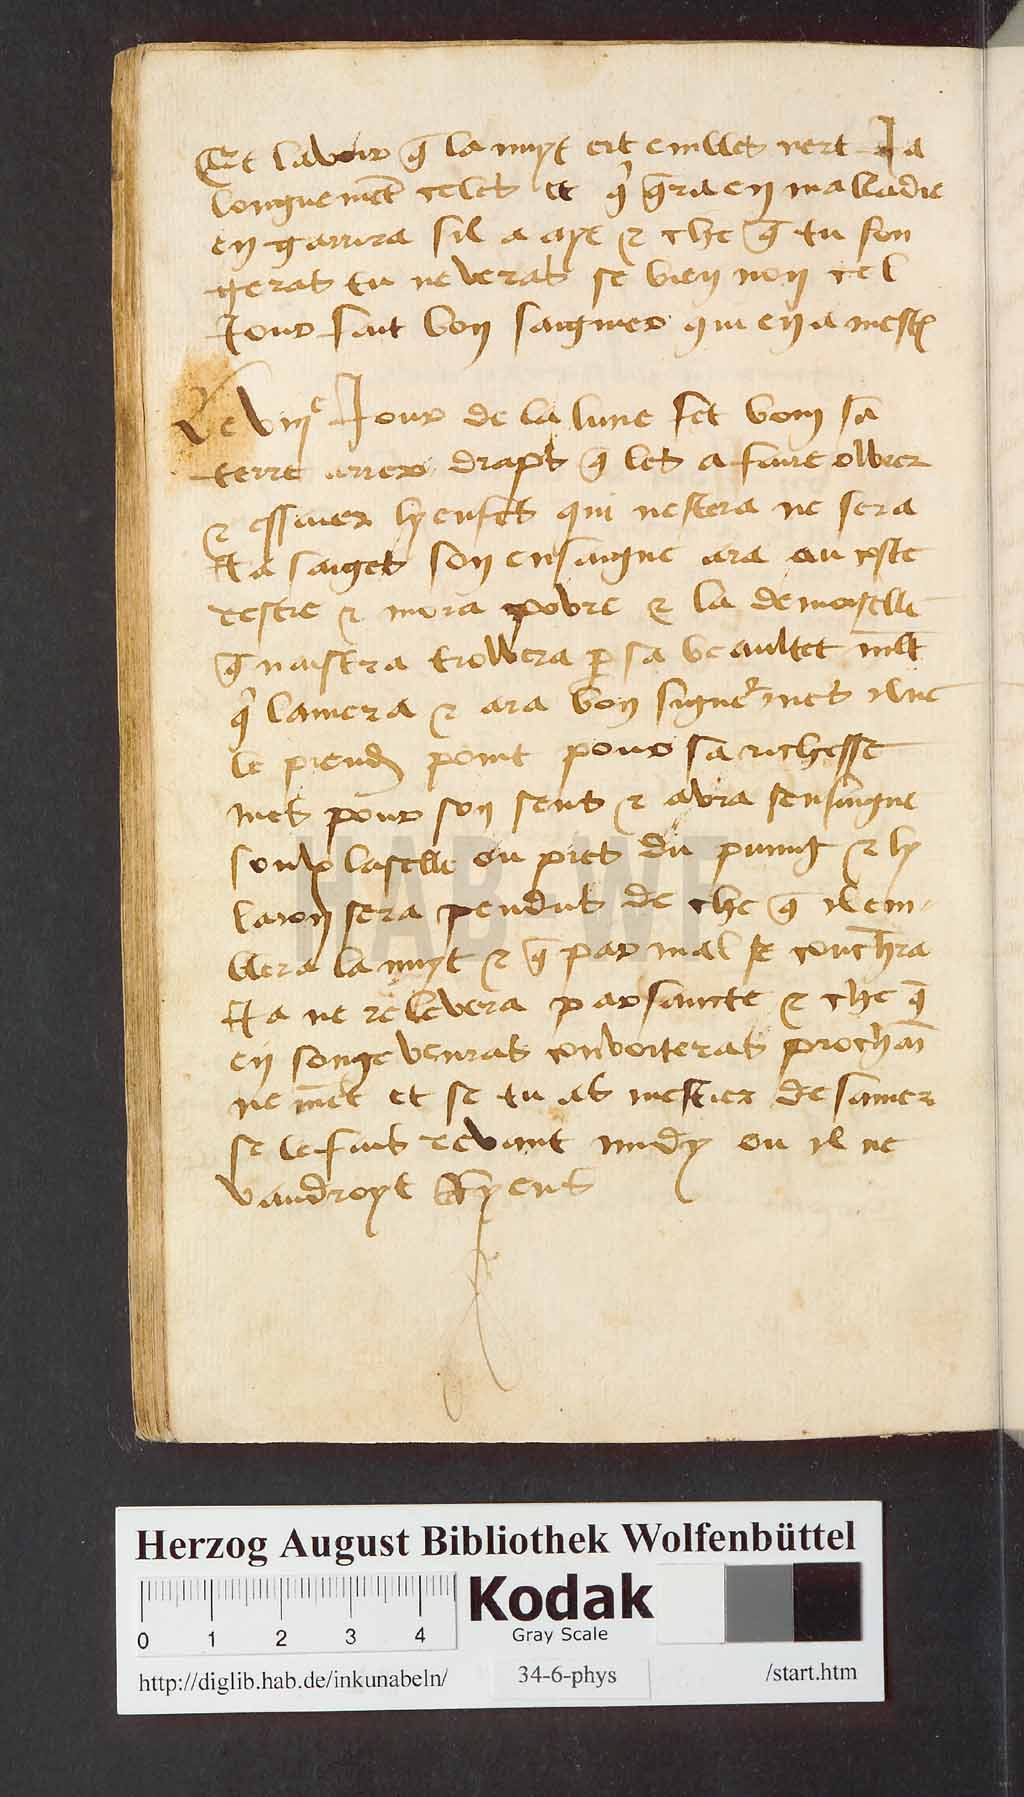 Et lavoir q̄ la nuyt ert emblet nert Ja
longuemēt celet et q̇ g̈ra en malladie
en garrira sil a aye ⁊ che q̄ tu son
geras tu ne veras se bien non cel
Jour fait bon saignier qui en a mest̄
Le viii^e Jour de la lune fet bom sā
terre arrer draps q̄ les a faire owrer
⁊ essauer ly enfēs qui nestera ne sera
Ja saiget son ensaigne ara au coste
destre ⁊ mora povre ⁊ la demoiselle
q̄ naistra trowera p̄ sa beaultet mlt̄
q̇ lamera ⁊ ara bon signe^r mes il ne
le prendᵉ point pour sa richesse
mes pour son sens ⁊ avra sensaigne
soub laselle ou pres du puing ⁊ ly
laron sera pendus de che q̄ il em
blera la nuyt ⁊ q̄ par mal se couchra
Ja ne relevera par sancte ⁊ che q̄
en songe venras convoiteras prochaī
nemēt et se tu as mestier de saner
se le fais devant midy ou il ne
vaudroyt Ryens
HAB-WF
Herzog August Bibliothek Wolfenbüttel
0 1 2 3 4
Kodak
Gray Scale
http://diglib.hab.de/inkunabeln/ 34-6-phys /start.htm